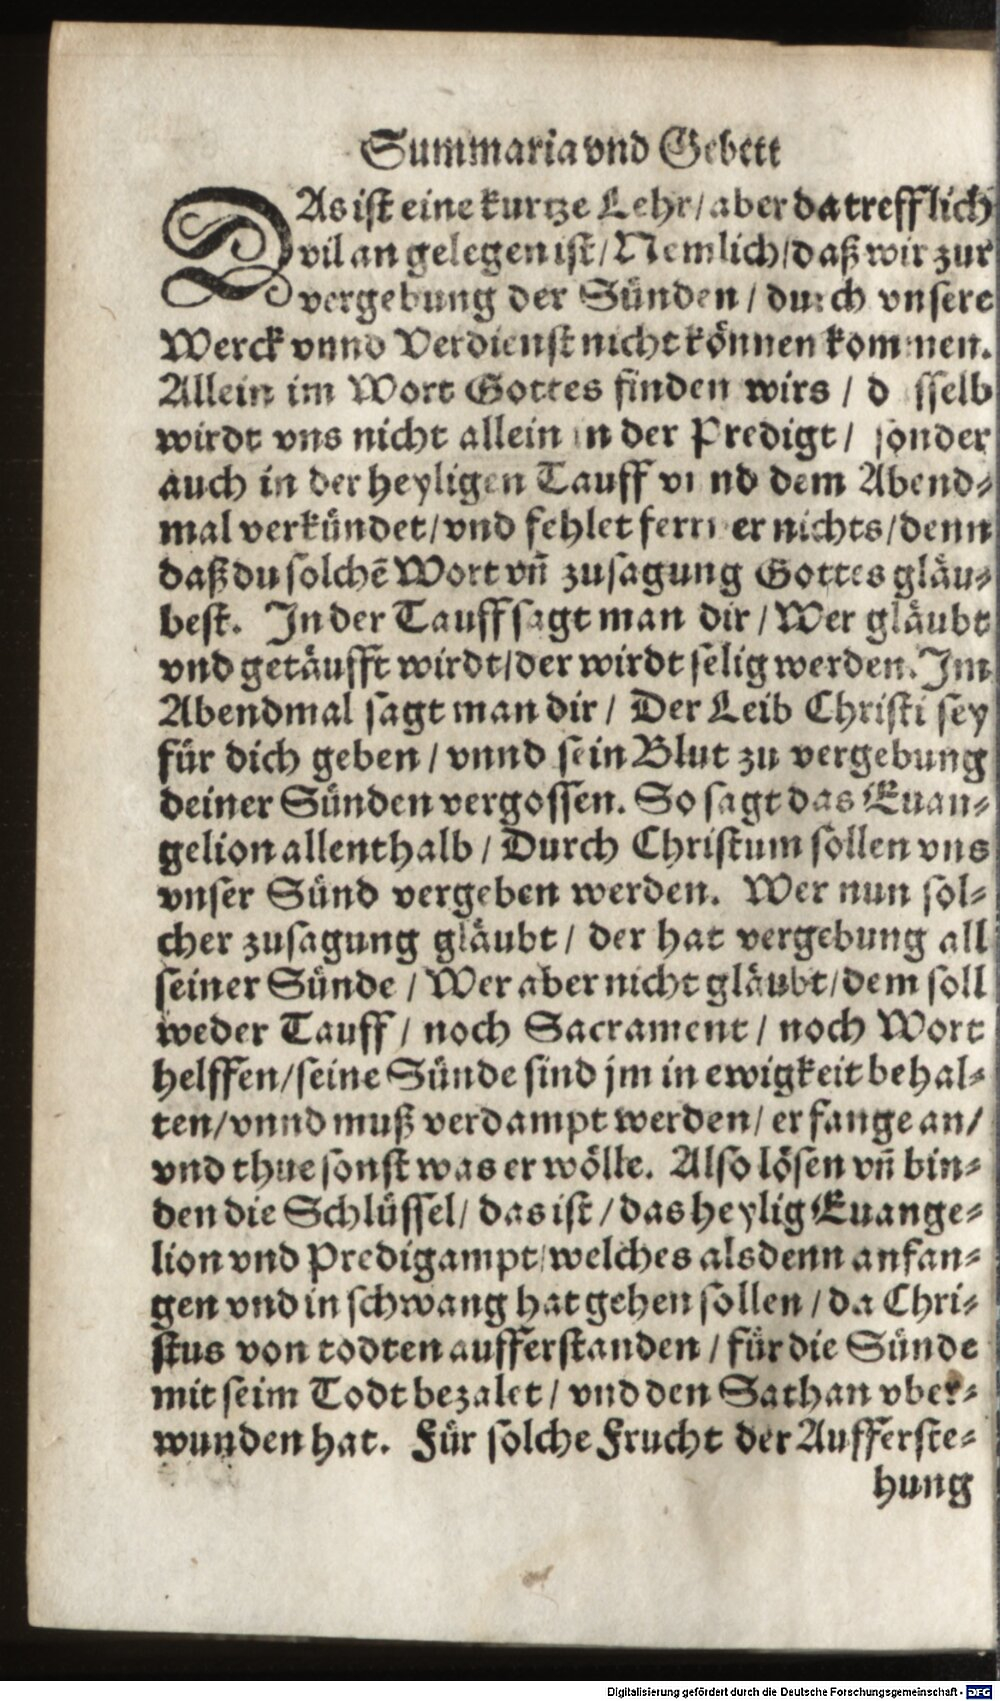 Summaria vnd Gebett
DAs ist eine kurtze Lehr / aber da trefflich
vil an gelegen ist / Nemlich / daß wir zur
vergebung der Sünden / durch vnsere
Werck vnnd Verdienst nicht können kommen.
Allein im Wort Gottes finden wirs / d sselb
wirdt vns nicht allein in der Predigt / sonder
auch in der heyligen Tauff vnnd dem Abend⸗
mal verkündet / vnd fehlet ferrner nichts / denn
daß du solchē Wort vn̄ zusagung Gottes gläu⸗
best. In der Tauff sagt man dir / Wer gläubt
vnd getäufft wirdt / der wirdt selig werden. Im
Abendmal sagt man dir / Der Leib Christi sey
für dich geben / vnnd sein Blut zu vergebung
deiner Sünden vergossen. So sagt das Euan⸗
gelion allenthalb / Durch Christum sollen vns
vnser Sünd vergeben werden. Wer nun sol⸗
cher zusagung gläubt / der hat vergebung all
seiner Sünde / Wer aber nicht gläubt / dem soll
weder Tauff / noch Sacrament / noch Wort
helffen / seine Sünde sind jm in ewigkeit behal⸗
ten / vnnd muß verdampt werden / er fange an /
vnd thue sonst was er wölle. Also lösen vn̄ bin⸗
den die Schlüssel / das ist / das heylig Euange⸗
lion vnd Predigampt / welches alsdenn anfan⸗
gen vnd in schwang hat gehen sollen / da Chri⸗
stus von todten aufferstanden / für die Sünde
mit seim Todt bezalet / vnd den Sathan vber⸗
wunden hat. Für solche Frucht der Aufferste⸗
hung
Digitalisierung gefördert durch die Deutsche Forschungsgemeinschaft - DFG